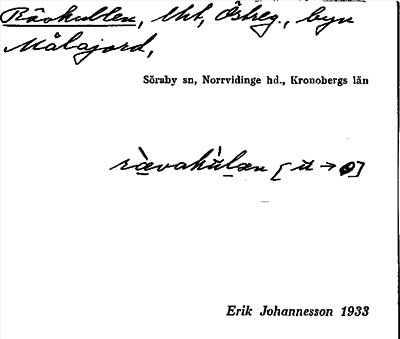 Rävkullen, tht, Östreg., byn
Målajord,
Söraby sn, Norrvidinge hd., Kronobergs län
rævakùlæn [ u → ]
Erik Johannesson 1933